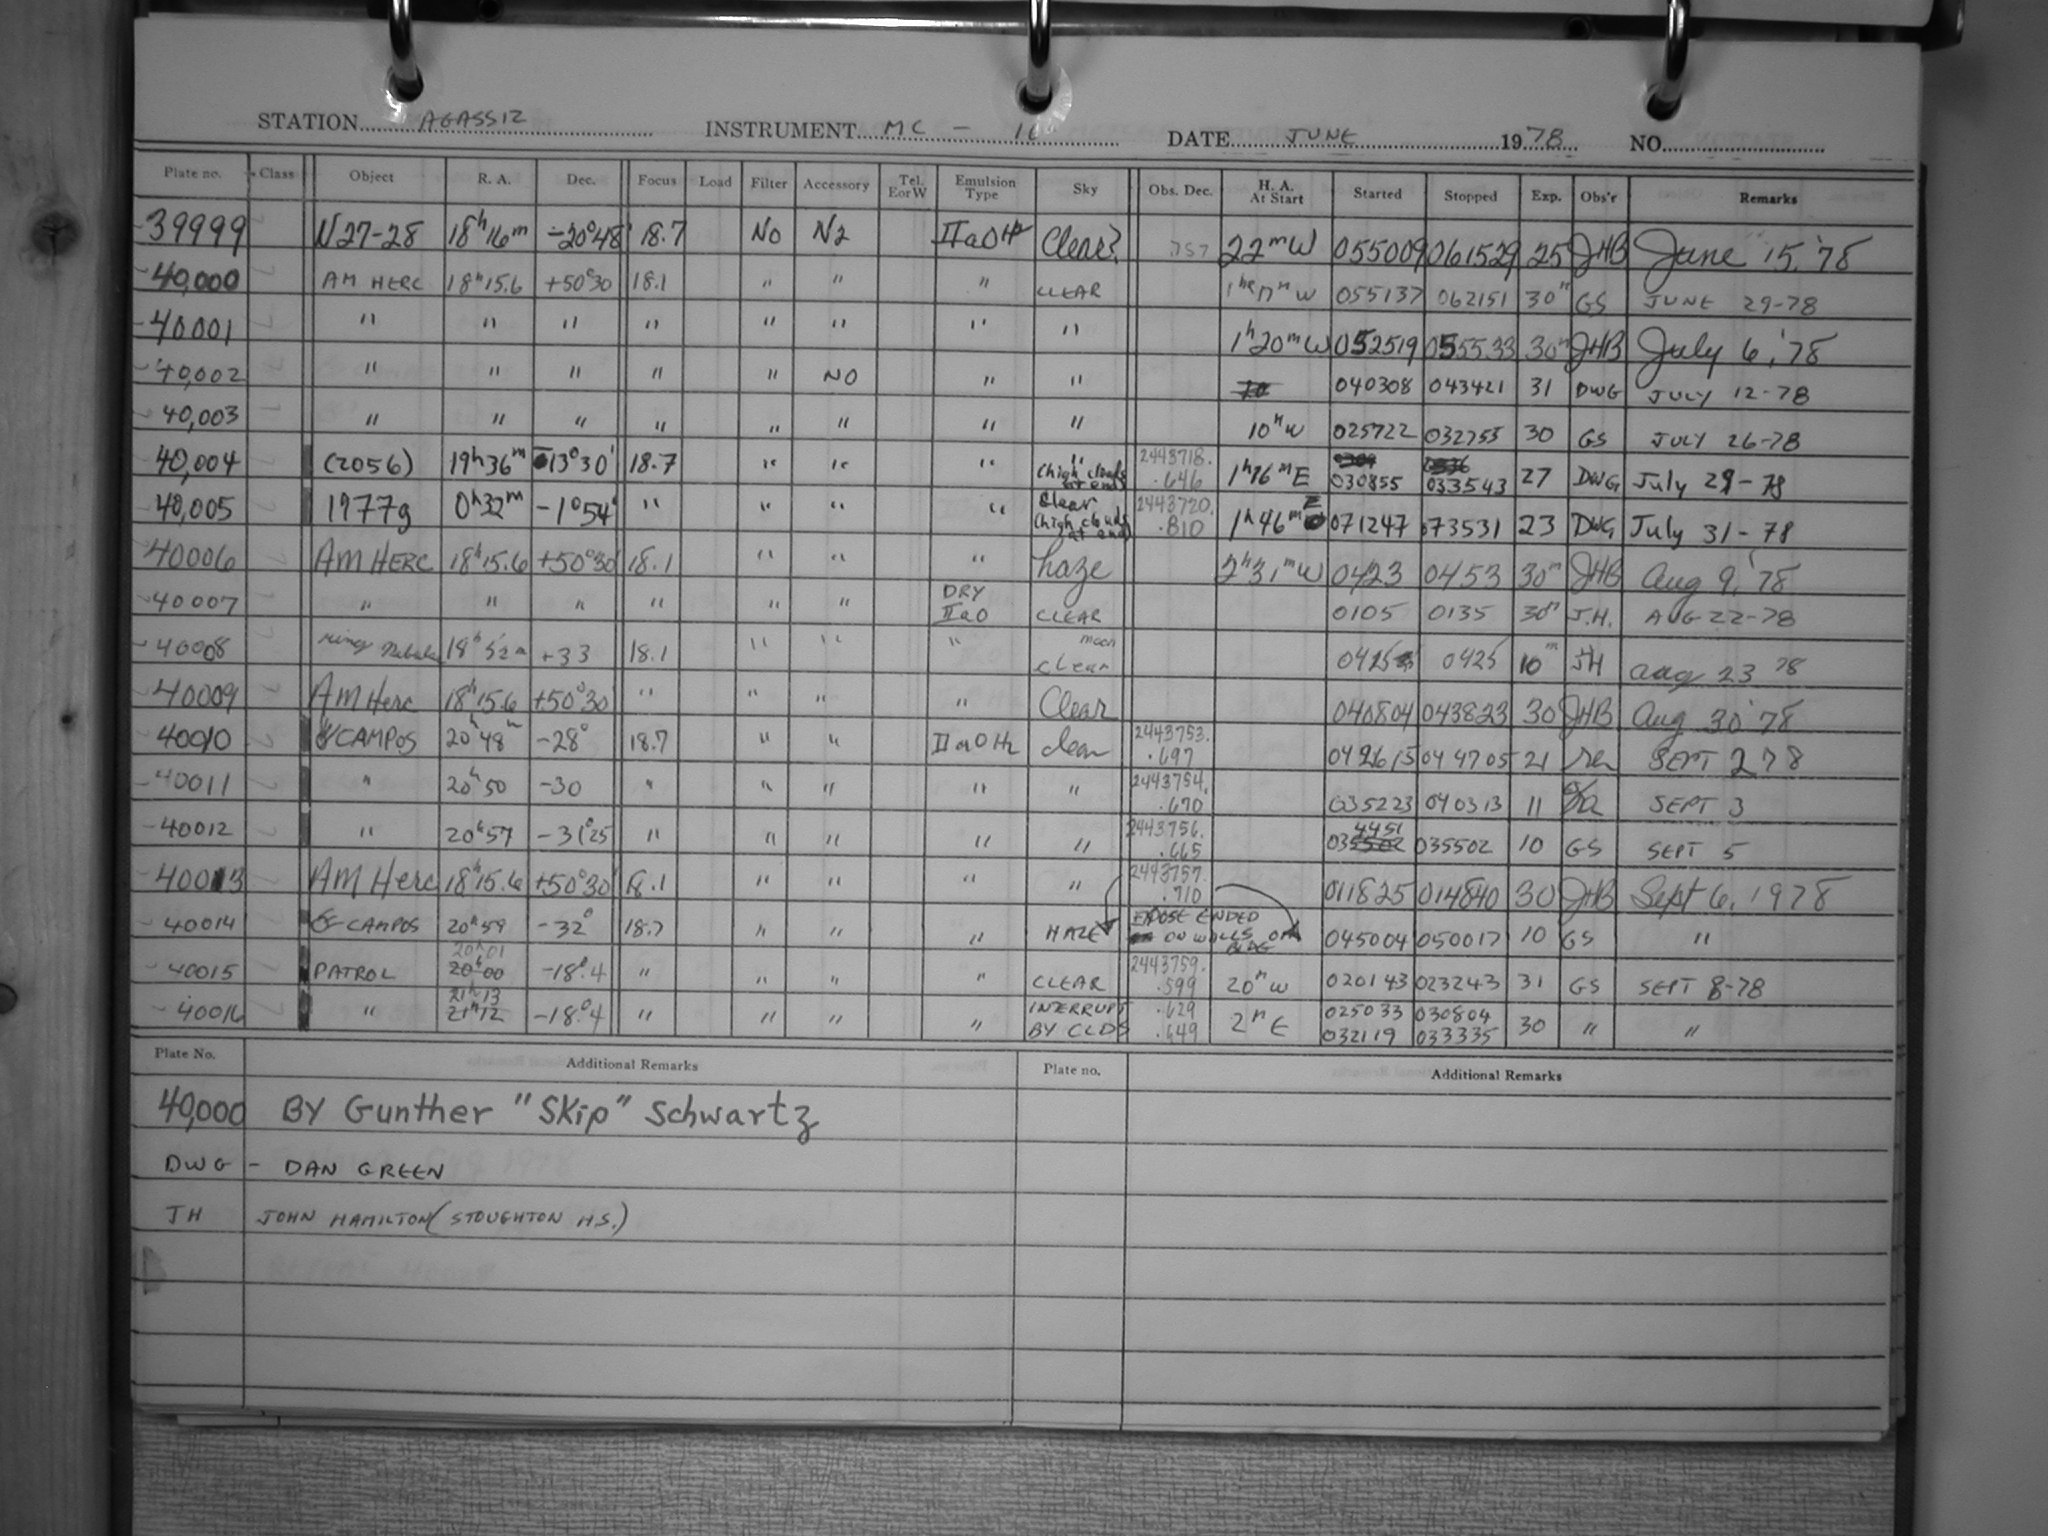 STATION AGASSIZ INSTRUMENT MC - 16 DATE JUNE 1978 NO.
Plate no. Class Object R. A. Dec. Focus Load Filter Accessory Tel. E or W Emulsion Type Sky Obs. Dec. H. A. At Start Started Stopped Exp. Obs'r Remarks
39999 N27-28 18h16m -20°48' 18.7 No N2 IIaO Clear? .757 22mW 055009 061529 25 JHB June 15, '78
40,000 AM HERC 18h15.6 +50°30 18.1 " " " CLEAR W 055137 062151 30m GS JUNE 29-78
40001 " " " " " " " " 1h20mW 052519 055533 30m JHB July 6, '78
40,002 " " " " " NO " " 040308 043421 31 DWG JULY 12-78
40,003 " " " " " " " " 10mW 025722 032755 30 GS JULY 26-78
40,004 (2056) 19h36m -13°30' 18.7 " " " " (high clouds at end) 2443718. .646 1h16mE 030855 033543 27 DWG July 29-78
40,005 1977g 0h32m -1°54' " " " " Clear (high clouds at end) 2443720. .810 1h46mE 071247 073531 23 DWG July 31-78
40006 AM HERC 18h15.6 +50°30 18.1 " " " haze 2h31mW 0423 0453 30m JHB Aug 9, '78
40007 " " " " " " DRY IIaO CLEAR 0105 0135 30m J.H. AUG 22-78
40008 Ring Nebula 18h52m +33 18.1 " " " moon clear 0415 0425 10m JH Aug 23 78
40009 AM Herc 18h15.6 +50°30 " " " " Clear 040804 043823 30 JHB Aug 30 '78
40010 CAMPOS 20h48m -28° 18.7 " " IIaO H2 clear 2443753. .697 042615 044705 21 SEPT 2 78
40011 " 20h50 -30 " " " " " 2443754. .670 035223 040313 11 SEPT 3
40012 " 20h57 -31°25 " " " " " 2443756. .665 034451 035502 10 GS SEPT 5
40013 AM Herc 18h15.6 +50°30 18.1 " " " " 2443757. .710 011825 014840 30 JHB Sept 6, 1978
40014 CAMPOS 20h59 -32° 18.7 " " " HAZE EXPOSE ENDED ON WALLS OF BLDG 045004 050017 10 GS "
40015 PATROL 20h01 20h00 -18°.4 " " " " CLEAR 2443759. .599 20mW 020143 023243 31 GS SEPT 8-78
40016 " 21h13 21h12 -18°.4 " " " " INTERRUPT BY CLDS .629 .649 2mE 025033 030804 032119 033335 30 " "
Plate No. Additional Remarks Plate no. Additional Remarks
40,000 BY Gunther "SKip" Schwartz
DWG - DAN GREEN
JH JOHN HAMILTON (STOUGHTON H.S.)